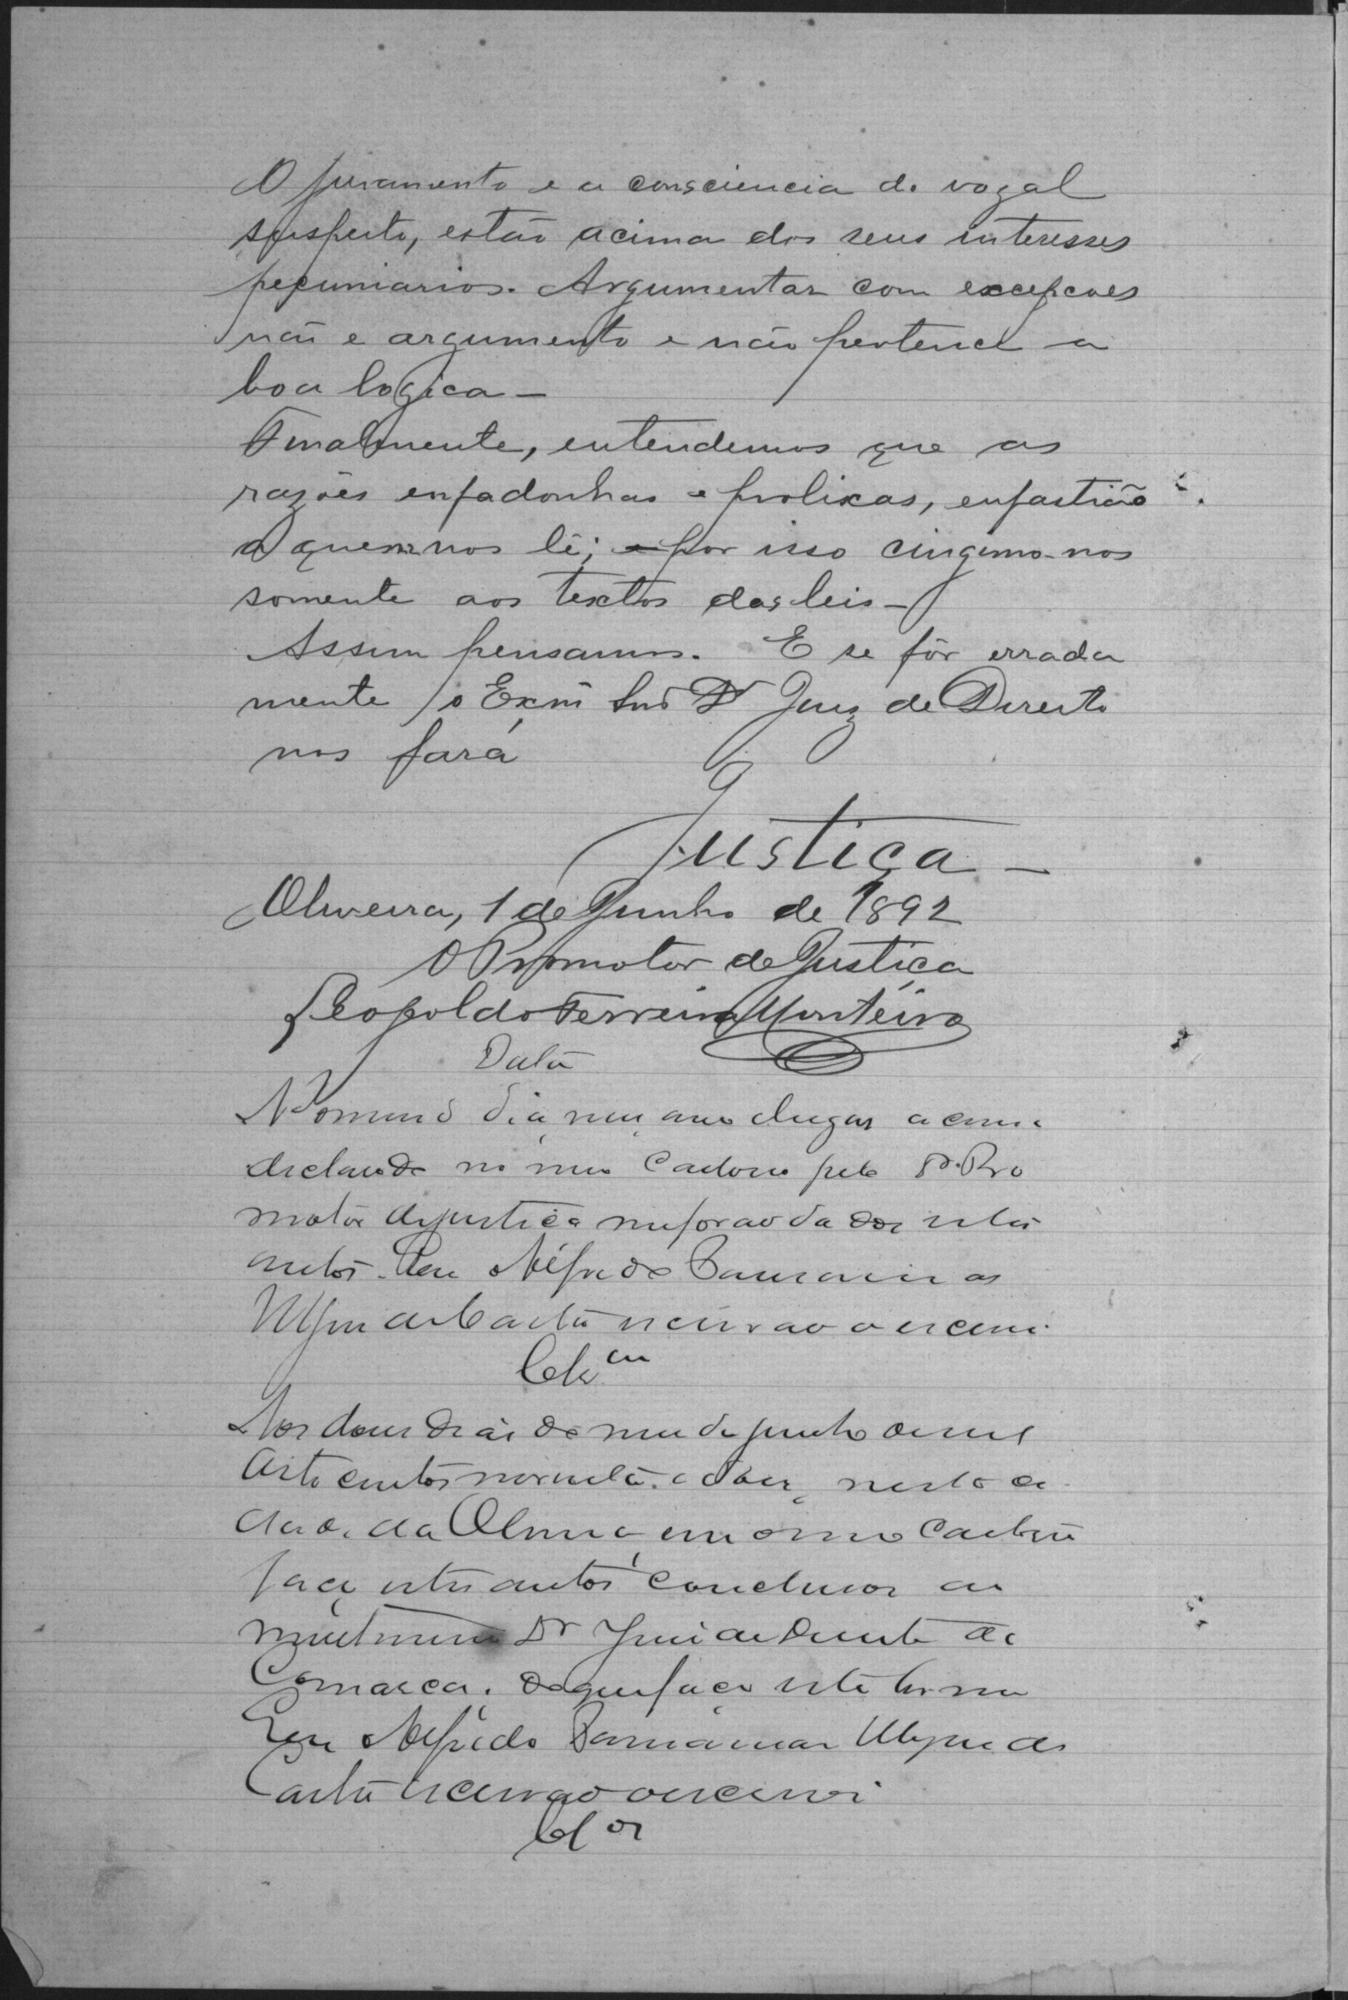 O juramento e a consciencia do vogal
suspeito, estão acima dos seus interesses
pecuniarios. Argumentar com excepcoes
não e argumento e não pertence a
boa logica –
Finalmente, entendemos que as
razões enfadonhas e prolixas, enfastião
a quem nos lê; e por isso cingimo-nos
somente aos textos das leis –
Assim pensamos. E se fôr errada
mente, o Exmº Snr Dr Juiz de Direito
nos fará
Justiça –
Oliveira, 1 de Junho de 1892
O Promotor de Justiça
Leopoldo Ferreira Monteiro
Data
No mesmo dia, mez anno e lugar acima
declarado no meu Cartorio pelo Dr. Pro
motor de justiça me forão dados estes
autos. Eu Alfredo
de Castro escrivão o escrevi
Clsm
Aos dous dias do mez de junho de mil
oito centos noventa e dous, nesta ci
dade da Oliveira em o meu Cartorio
faço estes autos conclusos ao
meritissimo Dr Juiz de Direito da
Comarca. do que faço este termo
Eu Alfredo de
Castro escrivão o escrevi
Clos